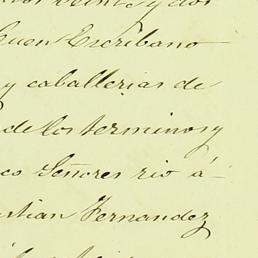 veinte y dos
Escribano
y caballerias de
de los terminos y
co Señores rio á
stian Fernandez